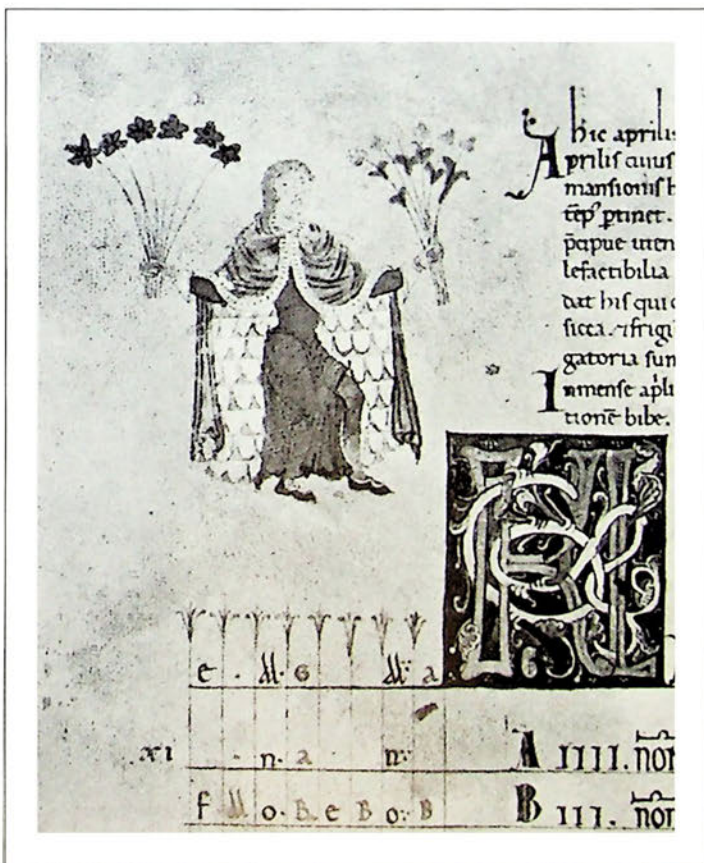 hic aprilis
Aprilis cuius
mansionis h
tēp̄ ꝑtinet.
p̄cipue uten
lefactibilia
dat his qui c
sicca. & frigi
gatoria sun
Inmense ap̄li
tionē bibe.
KL
e · M · G M : a
xı · n · a n : A IIII. noN
f M o · B e B o : B B III. noN